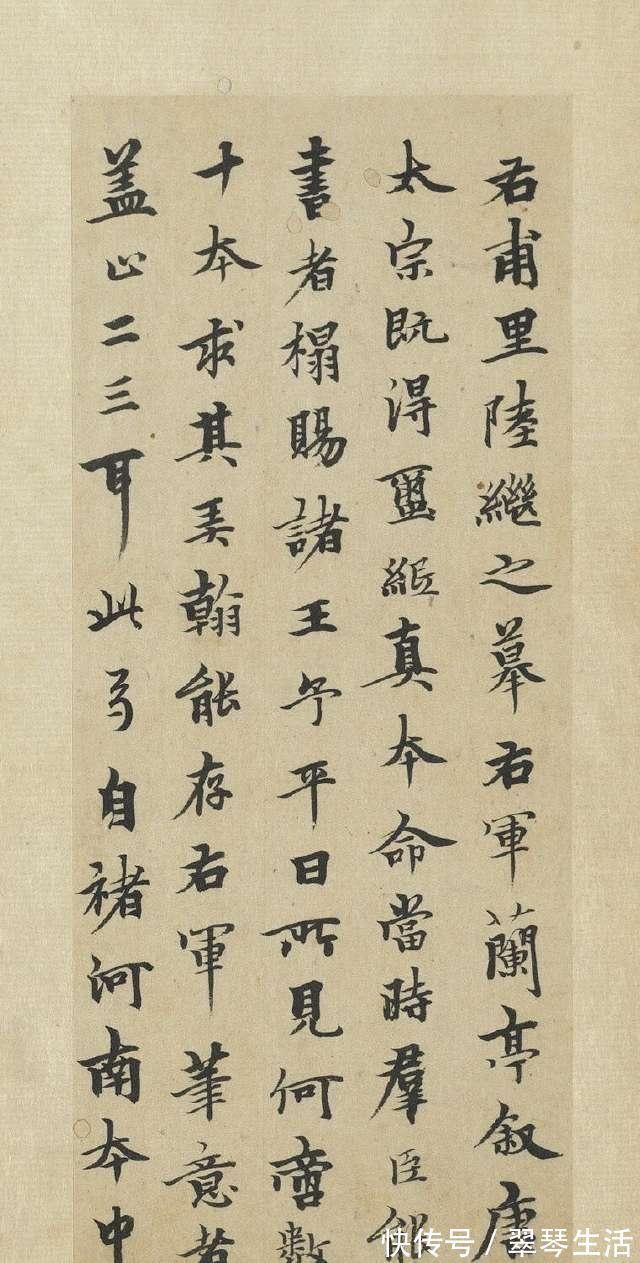 右甫里陸繼之摹右軍蘭亭敘唐
太宗既得璽𥿄真本命當時羣臣能
書者榻賜諸王予平日所見何啻數
十本求其美翰能存右軍筆意者
蓋止二三耳此乃自褚河南本中
快传号/翠琴生活